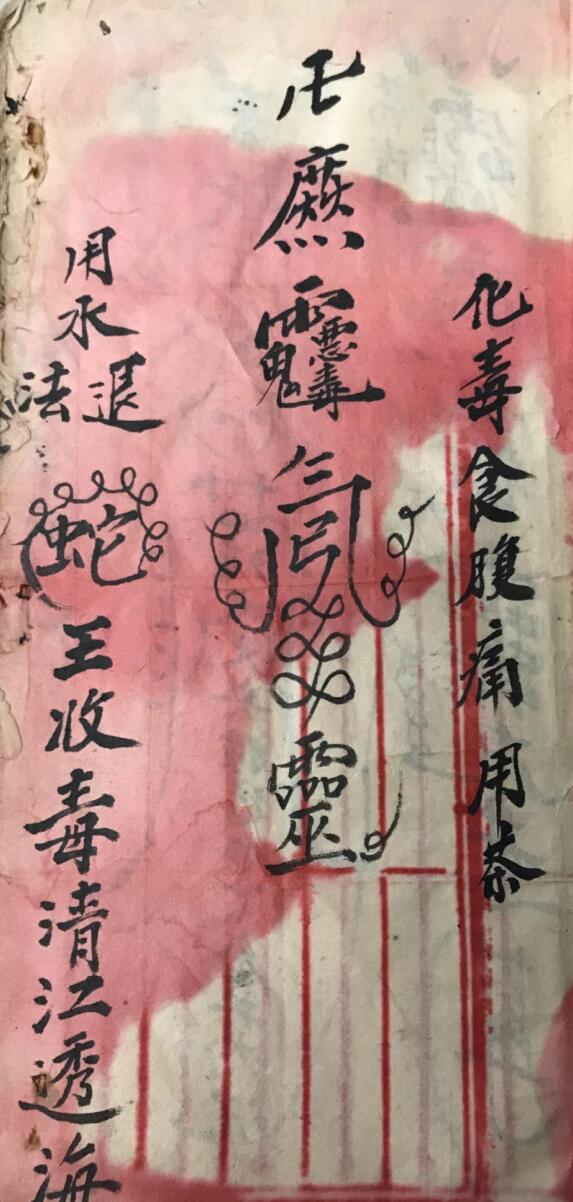 化毒食腹痛用茶
卍
靈
用水
退法
蛇王收毒清江透海